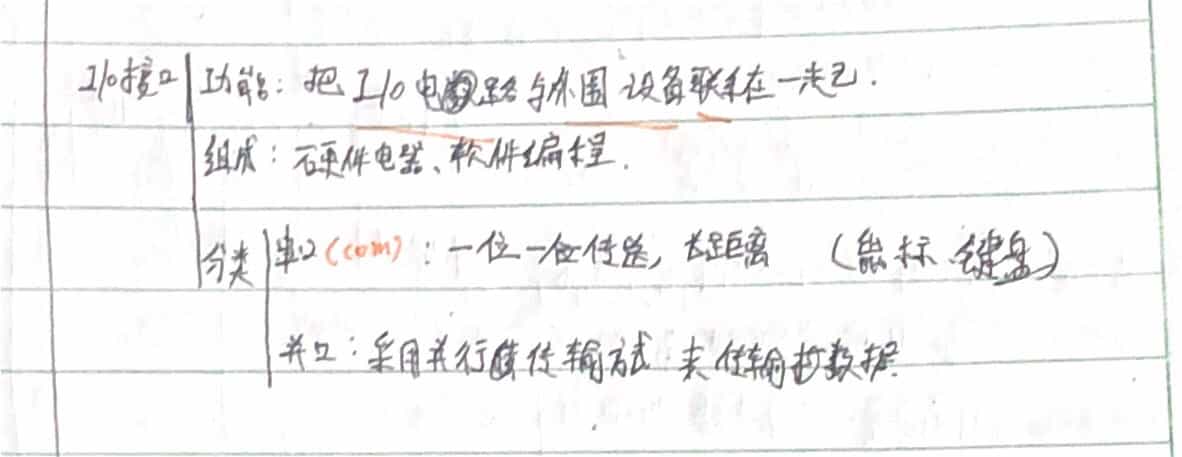 I/o接口 功能：把I/o电路与外围设备联系在一起.
组成：硬件电器、软件编程.
分类 串口(com)：一位一位传送，长距离 (鼠标.键盘)
并口：采用并行传输方式来传输数据.